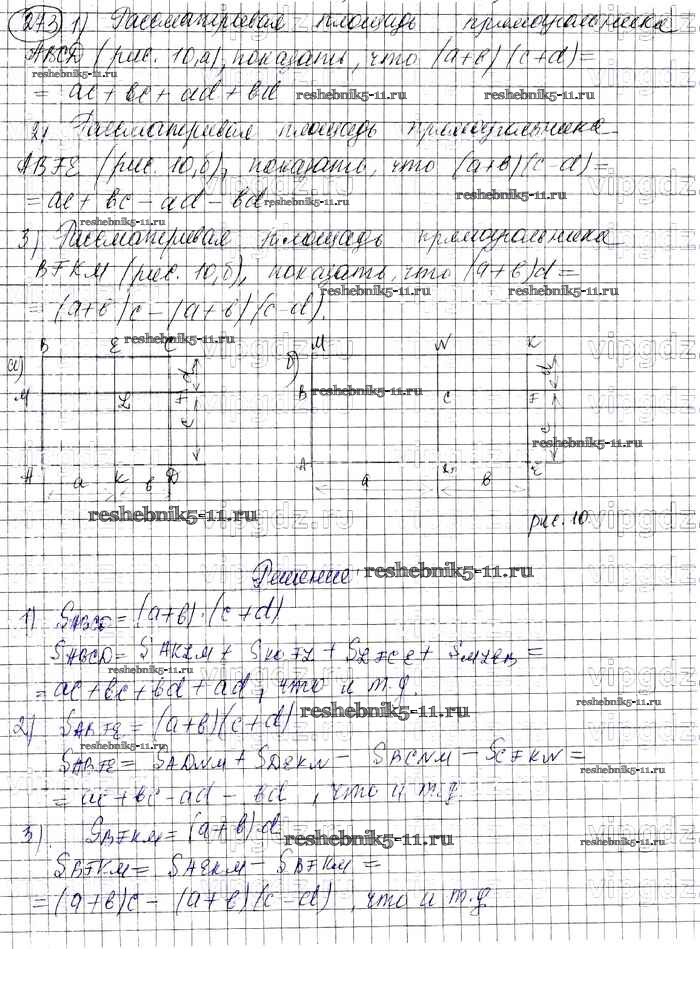 273 1) Рассматривая площадь прямоугольника
ABCD (рис. 10,а), показать, что (a+b)(c+d)=
= ac + bc + ad + bd
reshebnik5-11.ru reshebnik5-11.ru reshebnik5-11.ru
2) Рассматривая площадь прямоугольника
ABFE (рис. 10,б), показать, что (a+b)(c-d)=
= ac + bc - ad - bd
reshebnik5-11.ru reshebnik5-11.ru reshebnik5-11.ru
3) Рассматривая площадь прямоугольника
BFKM (рис. 10,б), показать, что (a+b)d=
= (a+b)c - (a+b)(c-d).
reshebnik5-11.ru reshebnik5-11.ru reshebnik5-11.ru
а) B E C d
M L F c
A a K b D
б) M N K d
B C F c
A a E b
reshebnik5-11.ru
рис. 10
Решение
reshebnik5-11.ru
1) SABCD = (a+b)·(c+d)
SABCD = SAKLM + SKDFL + SLFCE + SMLEB =
= ac + bc + bd + ad, что и т.д.
reshebnik5-11.ru
2) SABFE = (a+b)(c+d)
SABFE = SADNM + SDEKN - SBCNM - SCFKN =
= ac + bc - ad - bd, что и т.д.
reshebnik5-11.ru
3) SBFKM = (a+b)d
SBFKM = SAEKM - SBFKM =
= (a+b)c - (a+b)(c-d), что и т.д
reshebnik5-11.ru
vipgdz.ru